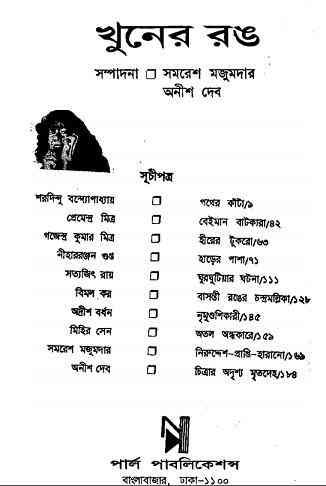 খুনের রঙ
সম্পাদনা □ সমরেশ মজুমদার
অনীশ দেব
সূচীপত্র
শরদিন্দু বন্দ্যোপাধ্যায় □ পথের কাঁটা/৯
প্রেমেন্দ্র মিত্র □ বেইমান বাটকারা/৪২
গজেন্দ্র কুমার মিত্র □ হীরের টুকরো/৬৩
নীহাররঞ্জন গুপ্ত □ হাড়ের পাশা/৭১
সত্যজিৎ রায় □ ঘুরঘুটিয়ার ঘটনা/১১১
বিমল কর □ বাসন্তী রঙের চন্দ্রমল্লিকা/১২৮
অদ্রীশ বর্ধন □ নৃমুণ্ডশিকারী/১৪৫
মিহির সেন □ অতল অন্ধকারে/১৫৯
সমরেশ মজুমদার □ নিরুদ্দেশ-প্রাপ্তি-হারানো/১৬৯
অনীশ দেব □ চিত্রার অদৃশ্য মৃতদেহ/১৮৪
পার্ল পাবলিকেশন্স
বাংলাবাজার, ঢাকা-১১০০